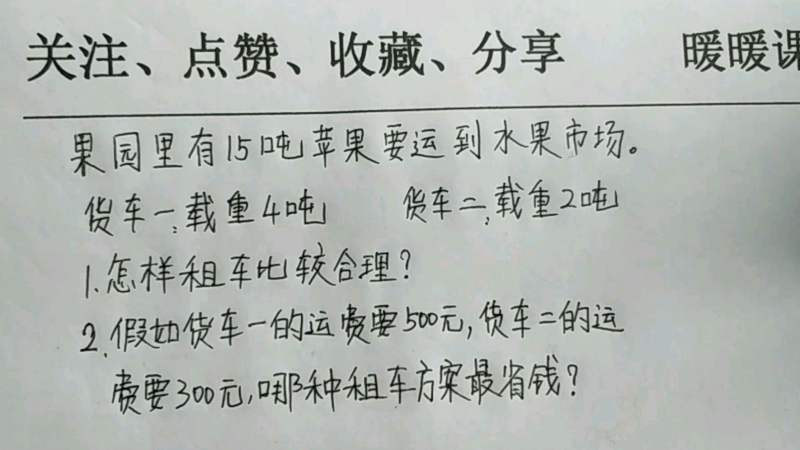 关注、点赞、收藏、分享 暖暖课
果园里有15吨苹果要运到水果市场。
货车一:载重4吨 货车二:载重2吨
1.怎样租车比较合理?
2.假如货车一的运费要500元,货车二的运
费要300元,哪种租车方案最省钱?